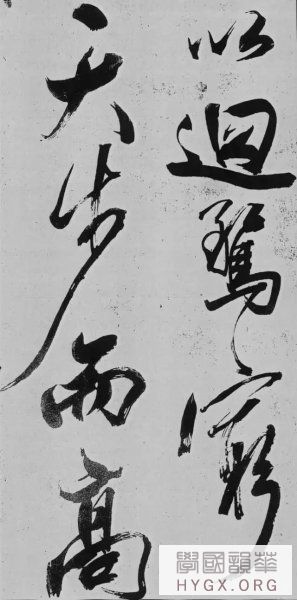 以迴騖窮
天步而高
華韻國學
HYGX.ORG